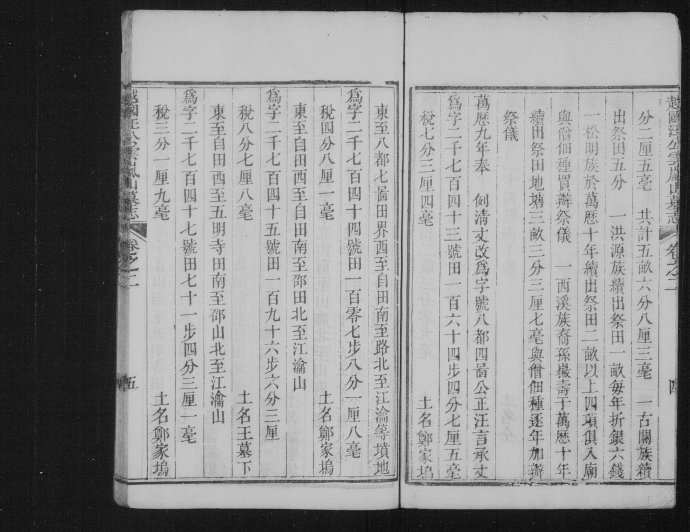 分二厘五毫　共計五畝六分八厘三毫　一古關族續
出祭田五分　一洪源族續出祭田一畝每年折銀六錢
一松明族於萬曆十年續出祭田二畝以上四項俱入廟
與僧佃種買辦祭儀　一西溪族裔孫機壽于萬曆十年
續出祭田地塘三畝三分三厘七毫與僧佃種逐年加辦
祭儀
萬曆九年奉　例清丈改為字號八都四啚公正汪言承丈
為字二千七百四十三號田一百六十四步四分七厘五毫
稅七分三厘四毫　土名鄭家塢
東至八都七啚田界西至自田南至路北至江淪等墳地
為字二千七百四十四號田一百零七步八分一厘八毫
稅四分八厘一毫　土名鄭家塢
東至自田西至自田南至邵田北至江淪山
為字二千七百四十五號田一百九十六步六分三厘
稅八分七厘八毫　土名王墓下
東至自田西至五明寺田南至邵山北至江淪山
為字二千七百四十七號田七十一步四分三厘一毫
稅三分一厘九毫　土名鄭家塢
越國汪公雲嵐山墓志　卷之二　五